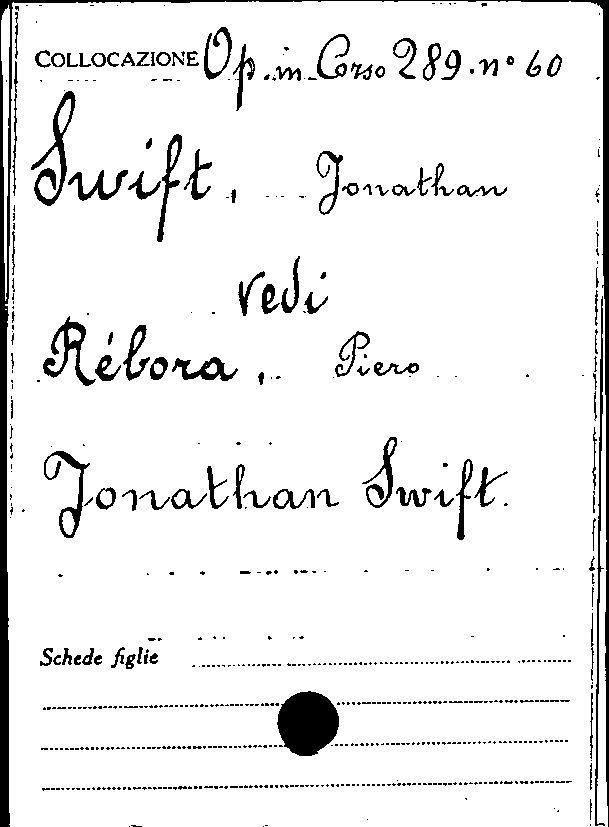 COLLOCAZIONE Op. in Corso 289. n° 60
Swift, Jonathan
vedi
Rébora, Piero
Jonathan Swift.
Schede figlie